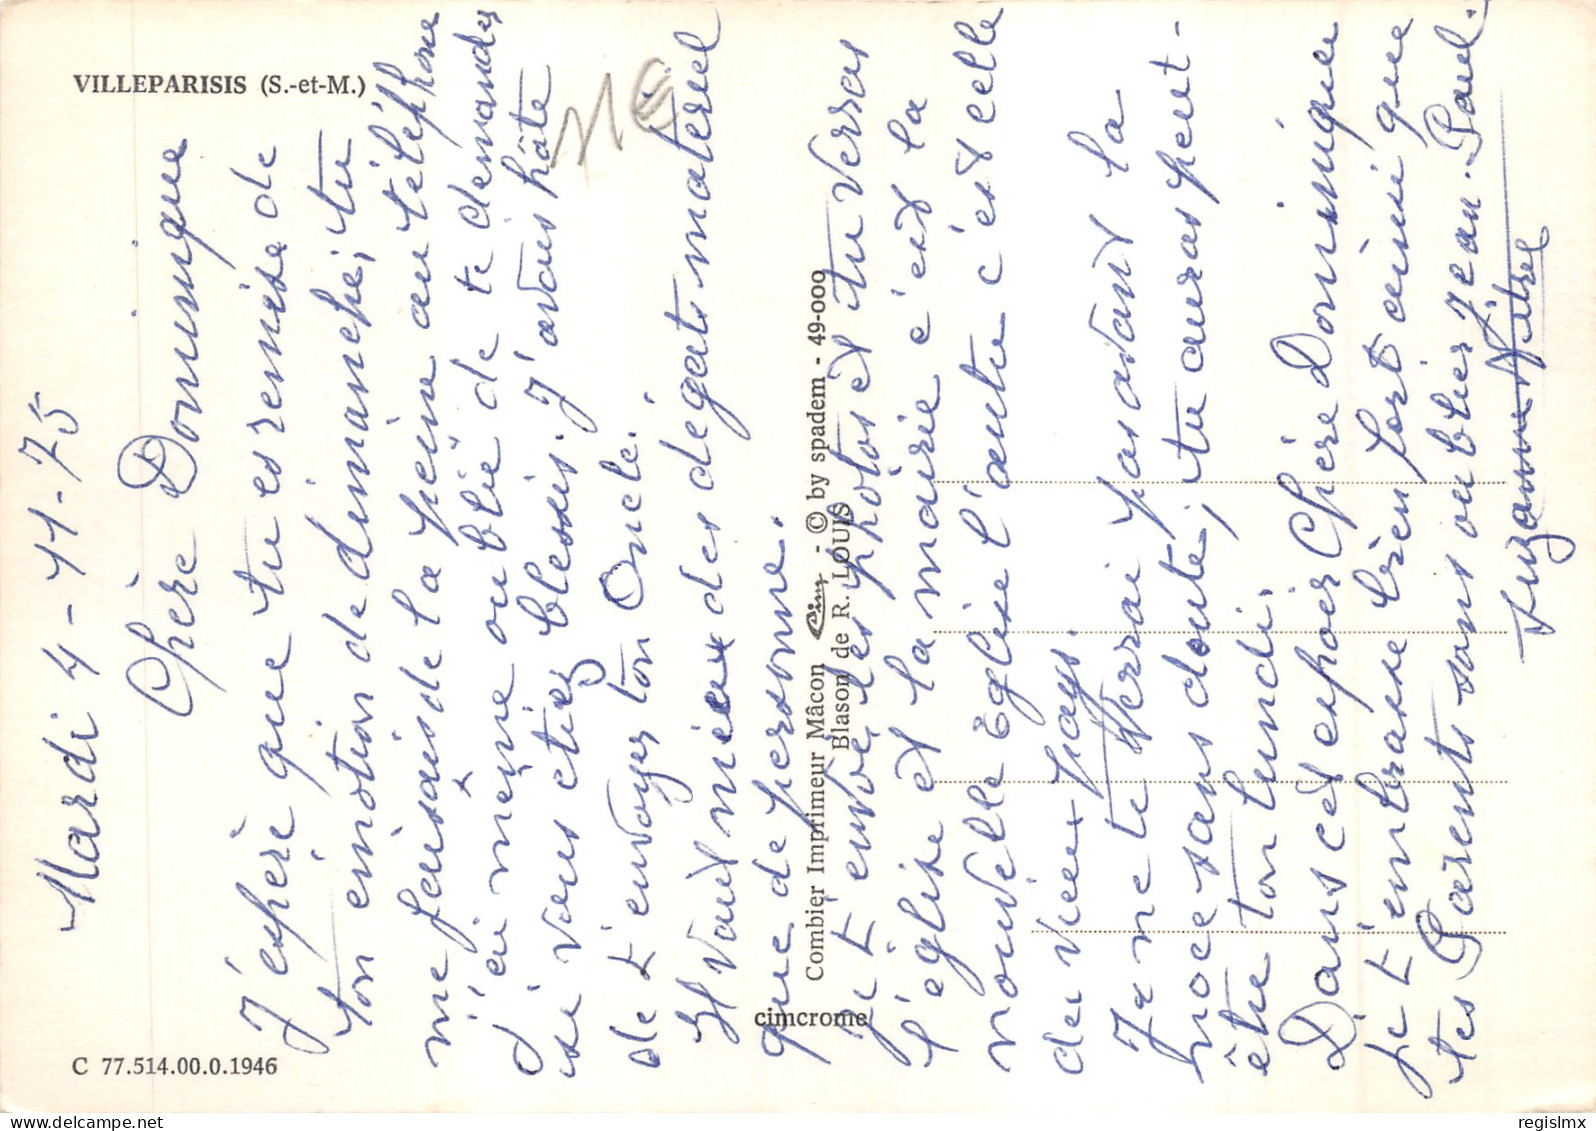 VILLEPARISIS (S.-et-M.)
Mardi 4-11-75
Chère Dominique
J'espère que tu es remise de
ton emotion de dimanche, tu
me faisais de la peine au téléphone
j'ai même oublié de te demander
si vous etiez blessés. J'avais hâte
de t'envoyer ton Oncle.
Il vaut mieux des dégats materiel
que de personne.
Je t'envoie les photos et tu verras
l'église et la mairie c'est la
nouvelle Eglise l'autre c'est celle
du vieux pays.
Je ne te verrai pas avant la
noce sans doute, tu auras peut-
être ton lundi.
Dans cet espoir Chère Dominique
je t'embrasse bien fort ainsi que
tes Parents sans oublier Jean-Paul.
Suzanne
Combier Imprimeur Mâcon Cim - © by spadem - 49-000
Blason de R. LOUIS
cimcrome
C 77.514.00.0.1946
regislmx